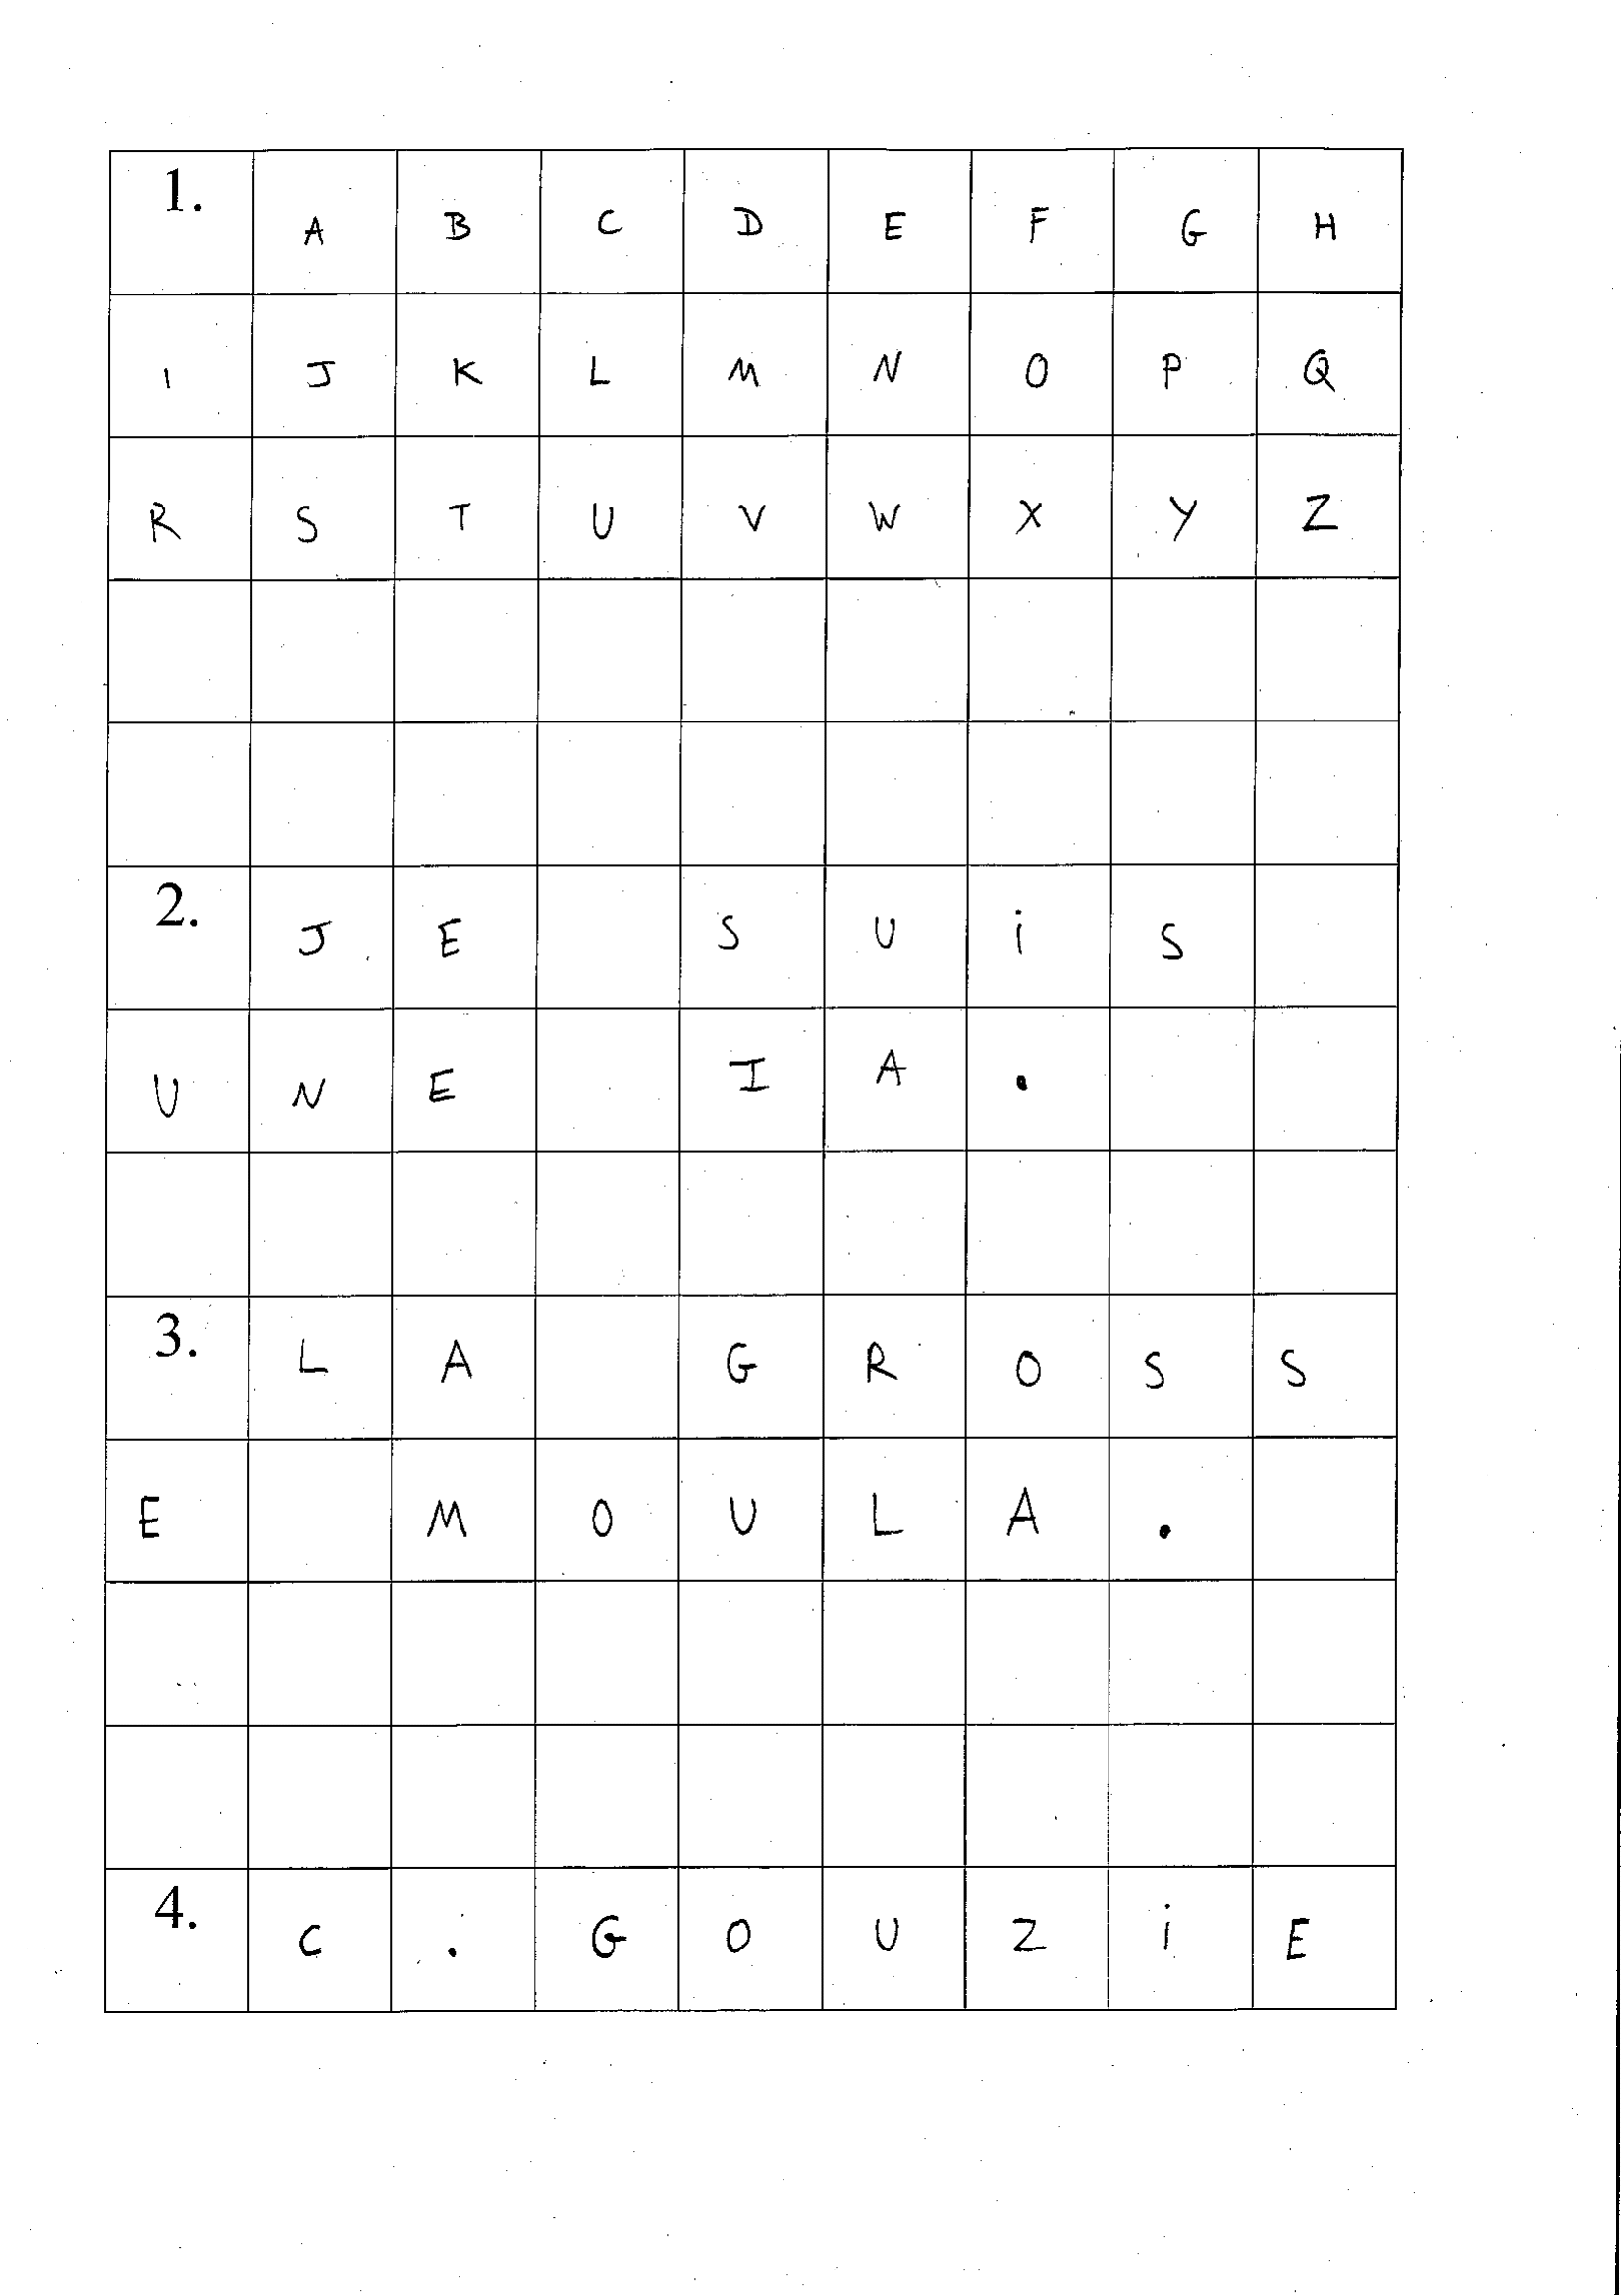 1. A B C D E F G H
I J K L M N O P Q
R S T U V W X Y Z
2. J E S U i S
U N E I A .
3. L A G R O S S
E M O U L A .
4. C . G O U Z i E